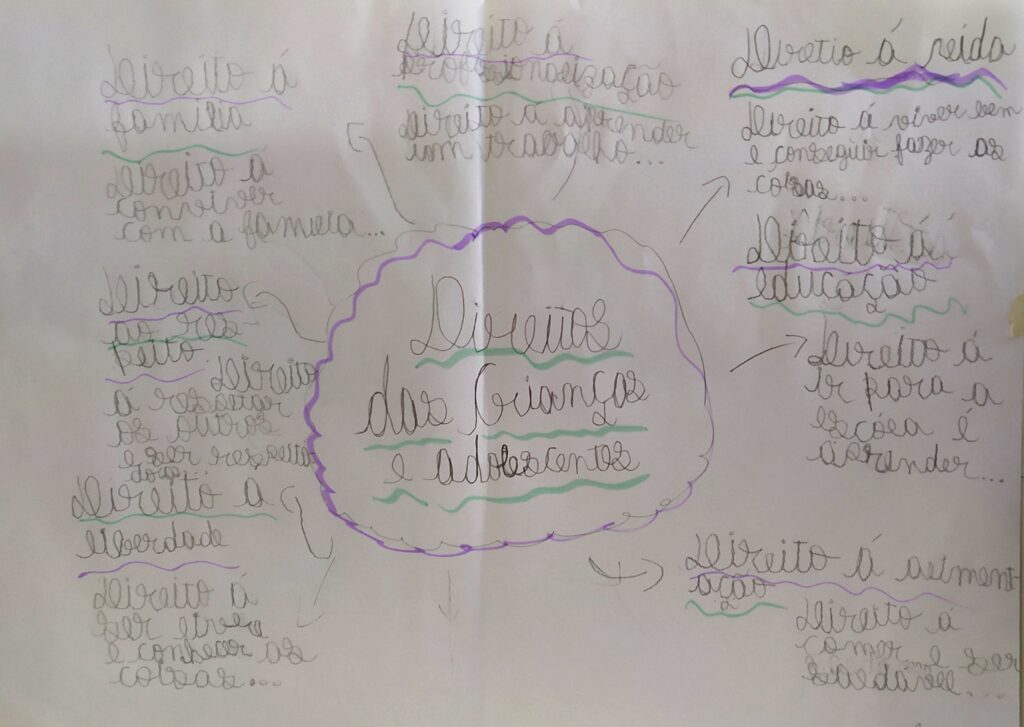 Direito á
família
Direito a
conviver
com a familia...
Direito á
profissionalização
Direito á aprender
um trabalho...
Diretio á vida
Direito á viver bem
e conseguir fazer as
coisas...
Direito á
educação
Direito á
ir para a
escola é
aprender...
Direitos
das Crianças
e adolescentes
Direito
ao res-
peito
Direito
a respeitar
os outros
e ser respeita
do...
Direito a
liberdade
Direito á
ser livre
e conhecer as
coisas...
Direito á aliment
ação
Direito a
comer e ser
saudável...